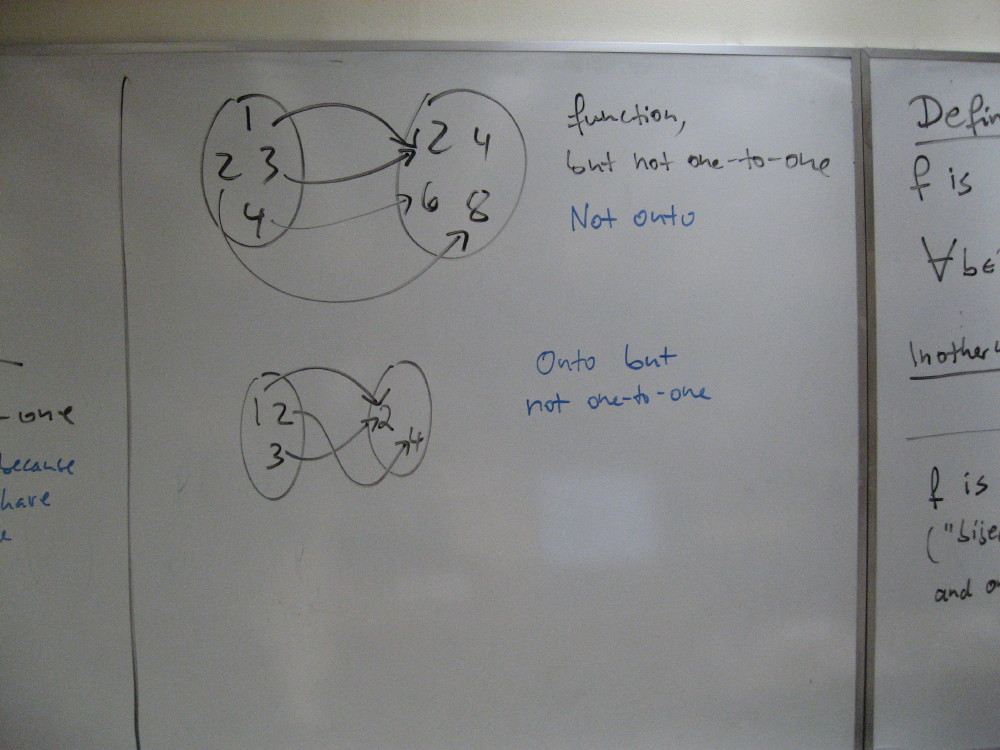 - one
because
have
1
2 3
4
2 4
6 8
function,
but not one-to-one
Not onto
1 2
3
2
4
Onto but
not one-to-one
f is
∀ b ∈
f is
and